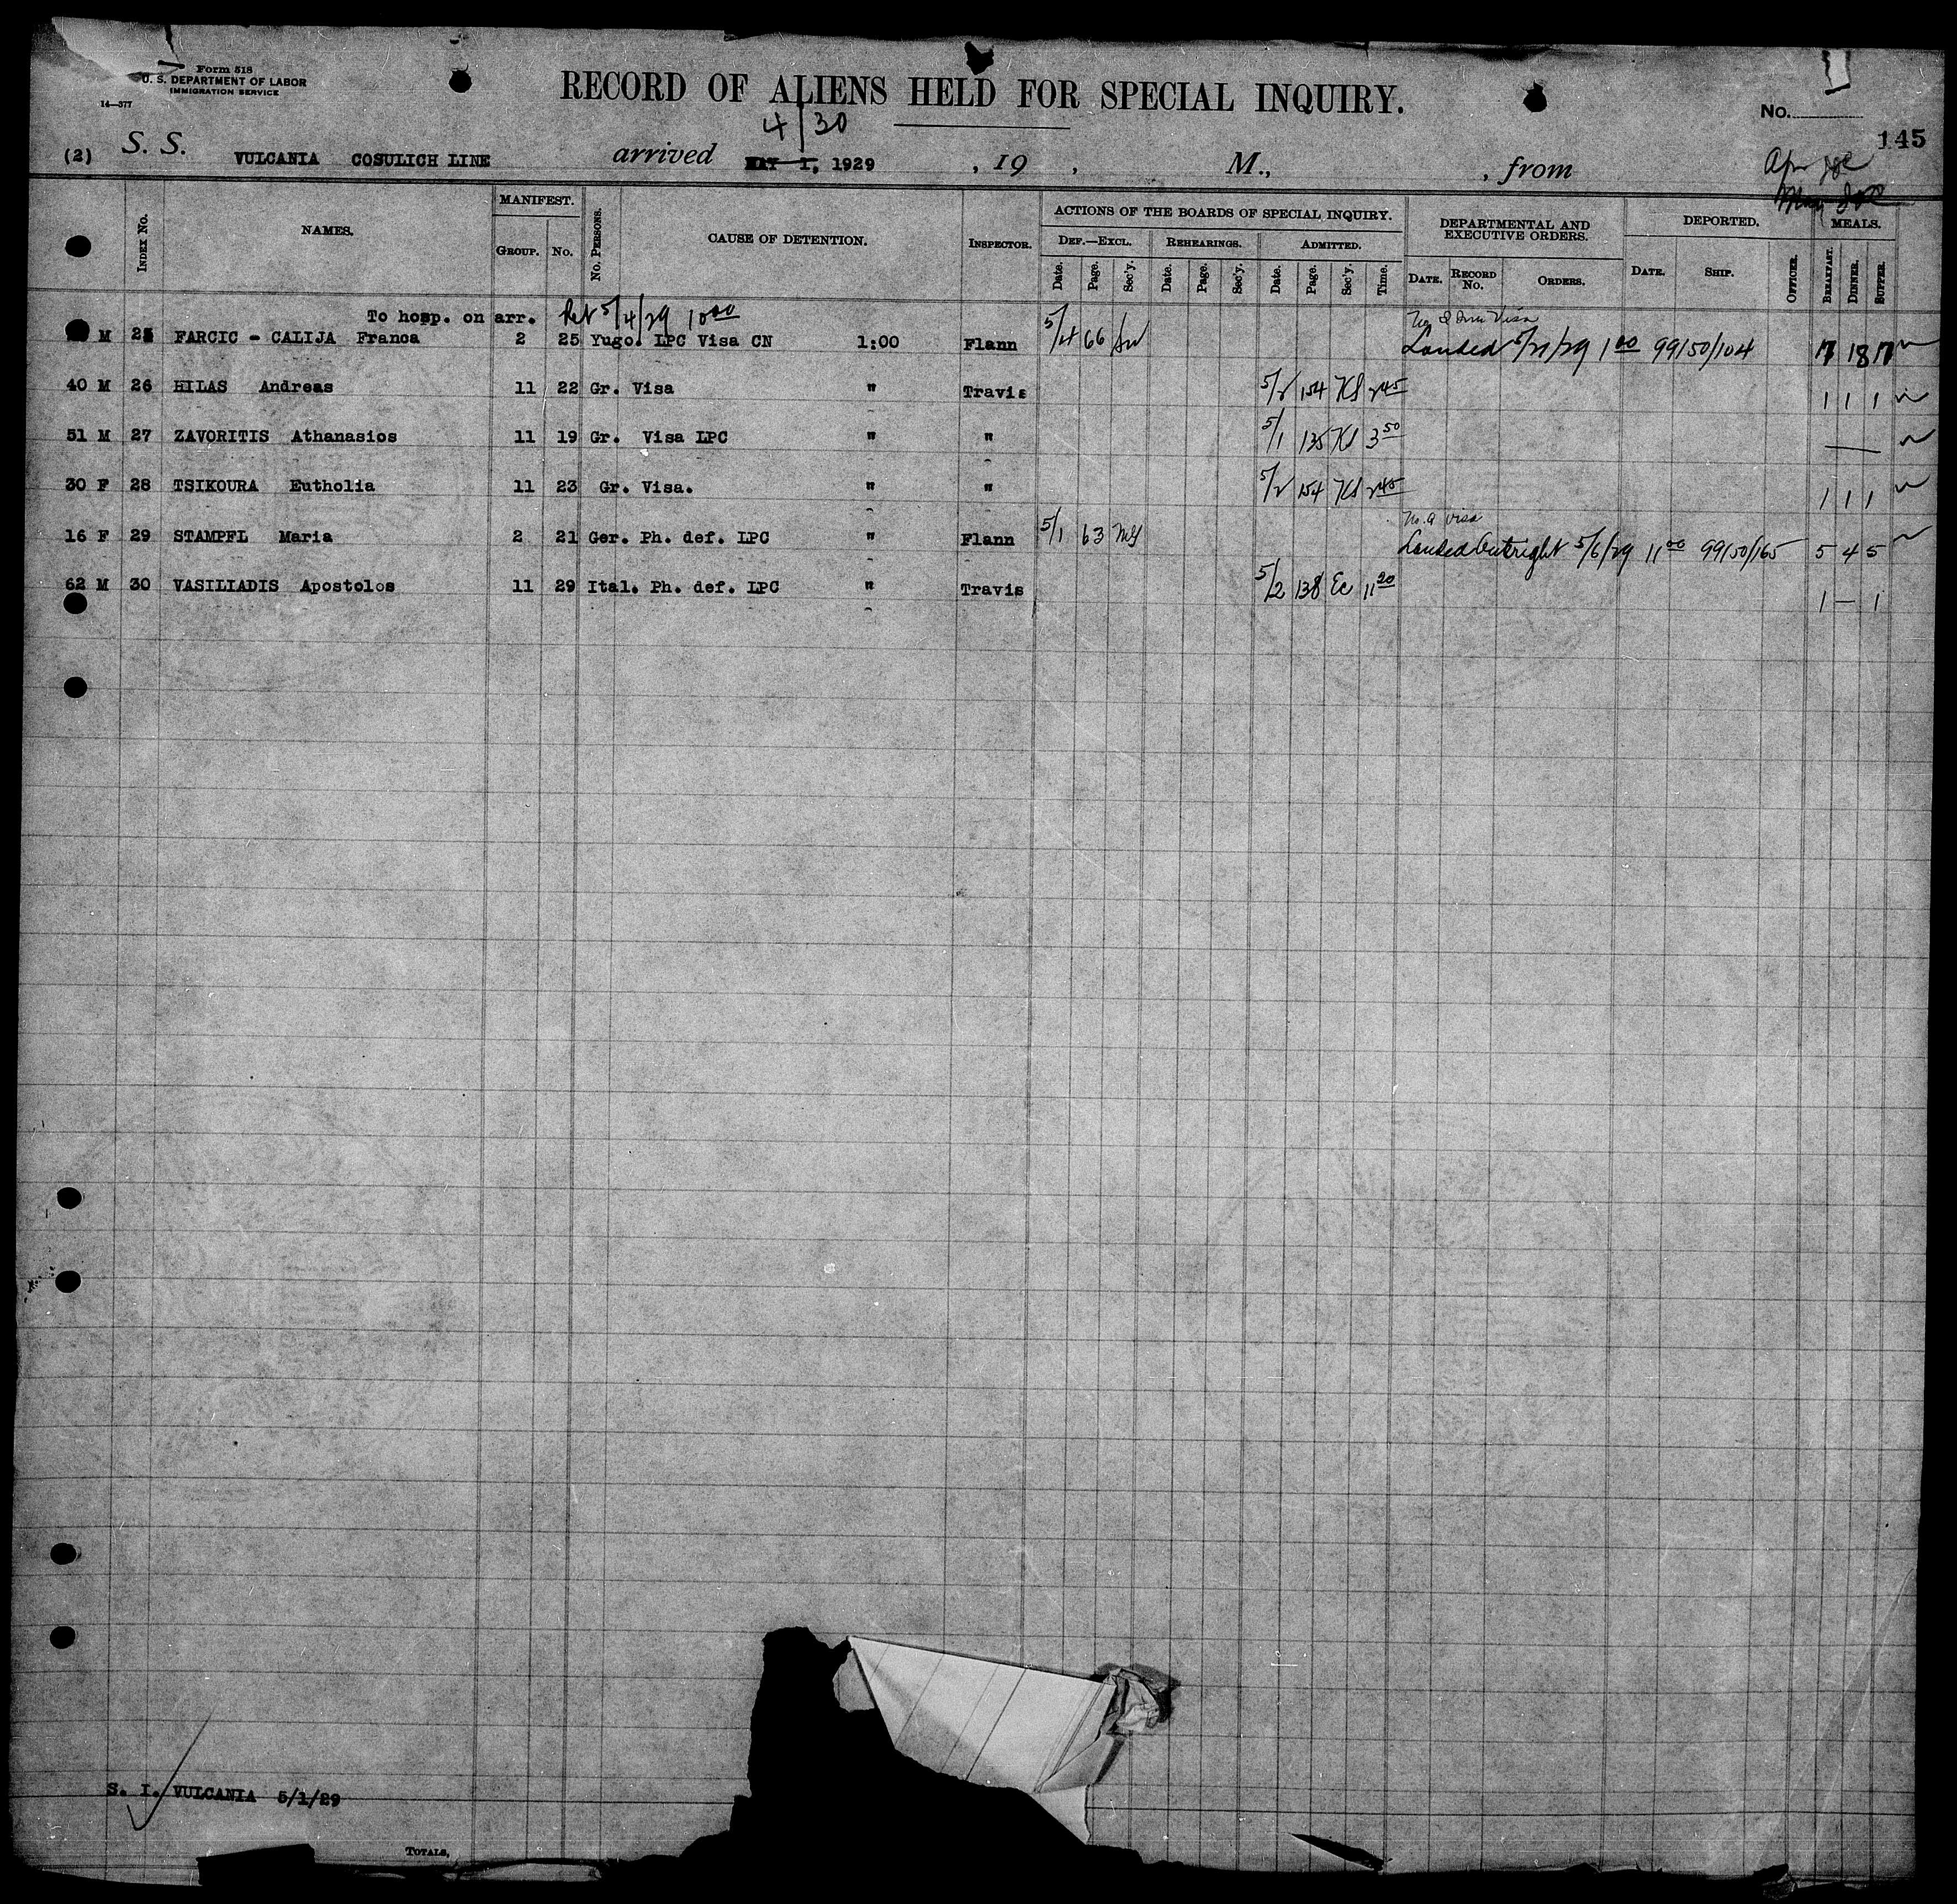 Form 518
U. S. DEPARTMENT OF LABOR
IMMIGRATION SERVICE
14—377
RECORD OF ALIENS HELD FOR SPECIAL INQUIRY.
No.
145
4/30
(2) S. S. VULCANIA COSULICH LINE arrived MAY 1, 1929 , 19 , M., , from
MANIFEST. ACTIONS OF THE BOARDS OF SPECIAL INQUIRY. DEPARTMENTAL AND EXECUTIVE ORDERS. DEPORTED. MEALS.
INDEX No. NAMES. GROUP. No. No. PERSONS. CAUSE OF DETENTION. INSPECTOR. DEF.—EXCL. REHEARINGS. ADMITTED.
Date. Page. Sec'y. Date. Page. Sec'y. Date. Page. Sec'y. Time. DATE. RECORD No. ORDERS. DATE. SHIP. OFFICER. BREAKFAST. DINNER. SUPPER.
To hosp. on arr. Ret 5/4/29 10 00
M 25 FARCIC - CALIJA Franca 2 25 Yugo. LPC Visa CN 1:00 Flann 5/4 66 Landed 5/21/29 1 00 99150/104 17 18 17
40 M 26 HILAS Andreas 11 22 Gr. Visa " Travis 5/2 154 KS 2 45 1 1 1
51 M 27 ZAVORITIS Athanasios 11 19 Gr. Visa LPC " " 5/1 135 KS 3 50 —
30 F 28 TSIKOURA Eutholia 11 23 Gr. Visa. " " 5/2 154 KS 2 45 1 1 1
16 F 29 STAMPFL Maria 2 21 Ger. Ph. def. LPC " Flann 5/1 63 Landed Outright 5/6/29 11 00 99150/165 5 4 5
62 M 30 VASILIADIS Apostolos 11 29 Ital. Ph. def. LPC " Travis 5/2 138 Ec 11 20 1 — 1
S. I. VULCANIA 5/1/29
TOTALS,